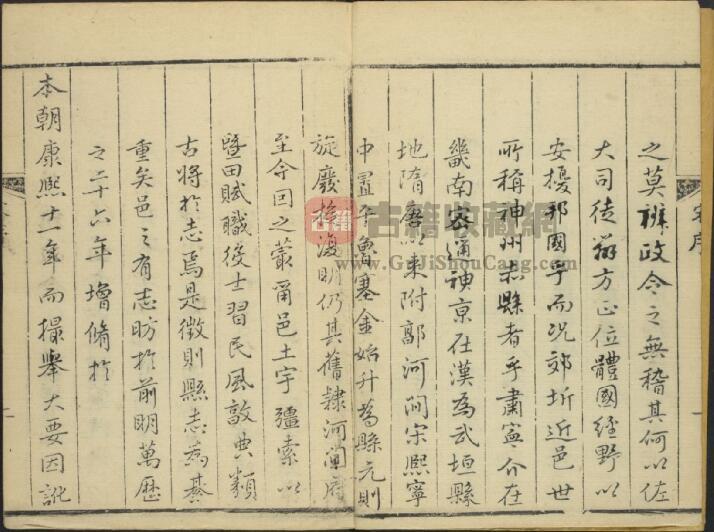 之莫裨政令之無稽其何以佐
大司徒辨方正位體國經野以
安擾邦國乎而况郊圻近邑世
所稱神州赤縣者乎肅寧介在
畿南密邇神京在漢為武垣縣
地隋唐以來附鄣河間宋熙寧
中置平魯塞金始升為縣元則
旋廢旋復明仍其舊隸河間府
至今因之叢爾邑土宇疆索以
暨田賦職役士習民風敦典類
古將於志焉是徵則縣志為綦
重矣邑之有志昉於前明萬歷
之二十六年增脩於
本朝康熙十一年而撮舉大要因訛
序
古籍收藏網
www.GuJiShouCang.com